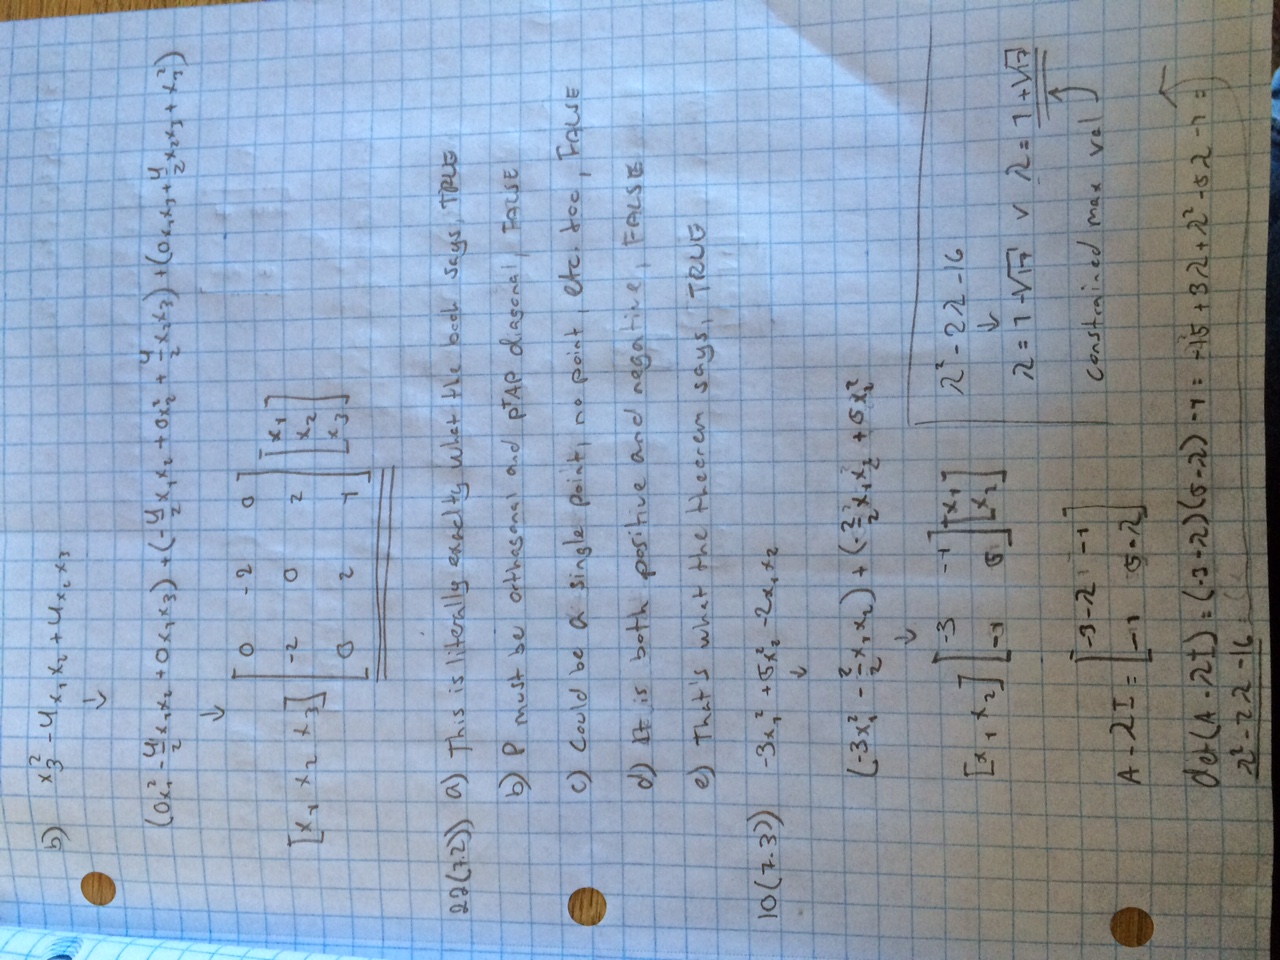 b) x₃² - 4x₁x₂ + 4x₂x₃
↓
(0x₁² - 4/2 x₁x₂ + 0x₁x₃) + (-4/2 x₁x₂ + 0x₂² + 4/2 x₂x₃) + (0x₁x₃ + 4/2 x₂x₃ + x₃²)
↓
[x₁ x₂ x₃] [0 -2 0; -2 0 2; 0 2 1] [x₁; x₂; x₃]
22(7.2)) a) This is literally exaclty what the book says, TRUE
b) P must be orthogonal and PᵀAP diagonal, FALSE
c) Could be a single point, no point, etc. too, FALSE
d) It is both positive and negative, FALSE
e) That's what the theorem says, TRUE
10(7.3)) -3x₁² + 5x₂² - 2x₁x₂
↓
(-3x₁² - 2/2 x₁x₂) + (-2/2 x₁x₂ + 5x₂²
↓
[x₁ x₂] [-3 -1; -1 5] [x₁; x₂]
A - λI = [-3-λ -1; -1 5-λ]
det(A - λI) = (-3-λ)(5-λ) - 1 = -15 + 3λ + λ² - 5λ - 1 =
λ² - 2λ - 16
λ² - 2λ - 16
↓
λ = 1 - √17 ∨ λ = 1 + √17
constrained max val